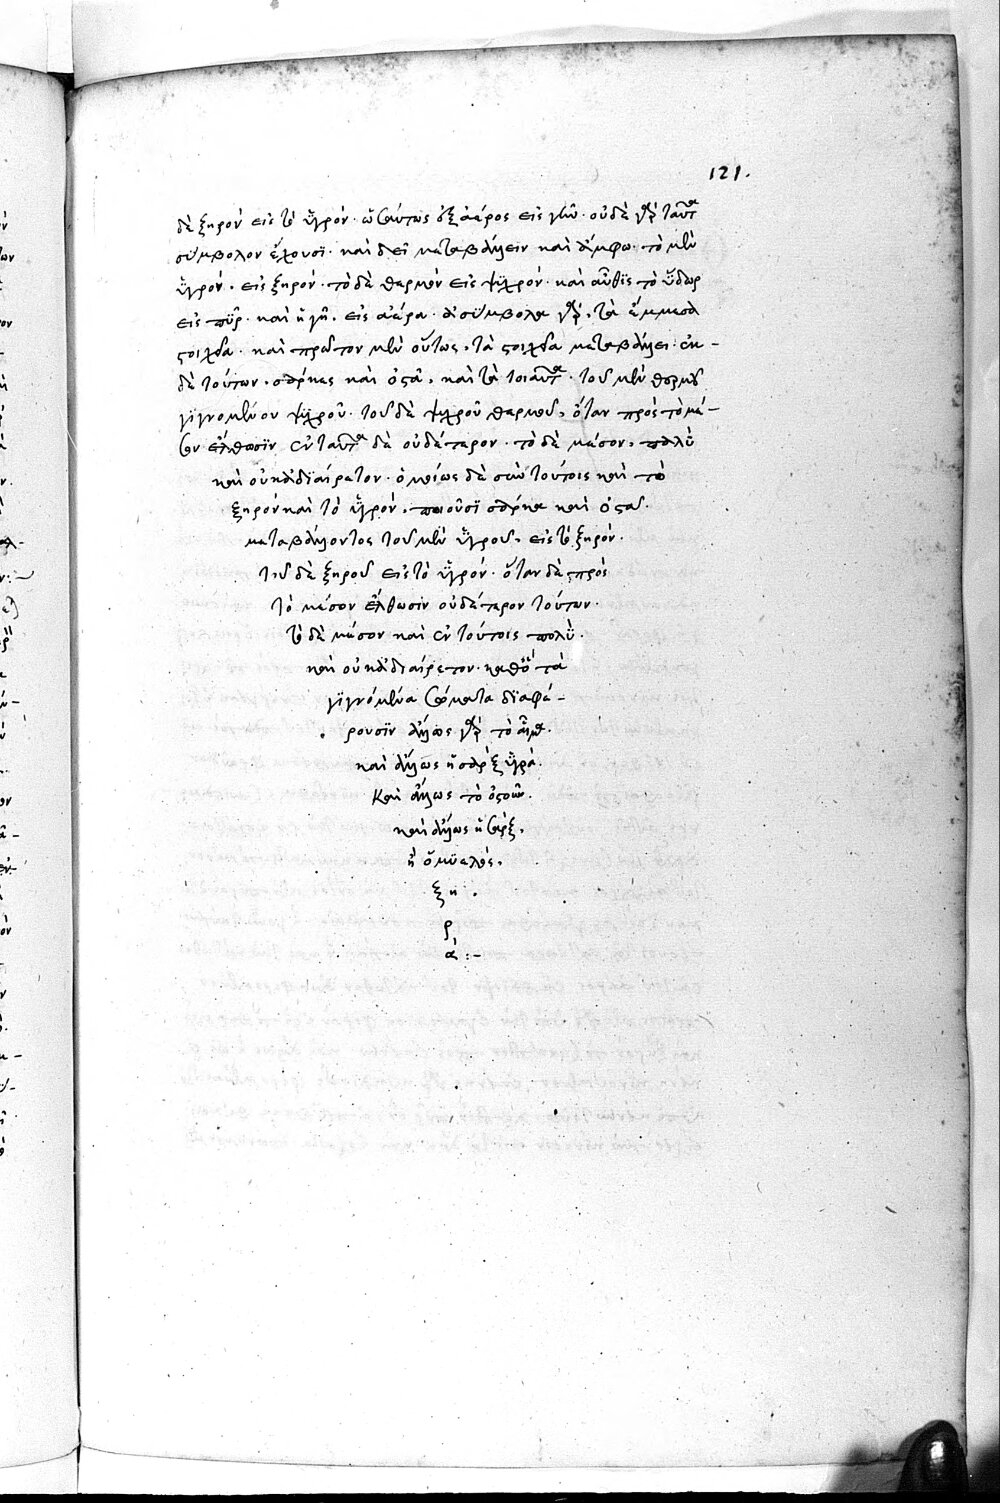 121.
δὲ ξηρὸν εἰς τὸ ὑγρόν· ὡσαύτως ἐξ ἀέρος εἰς γῆν· οὐδὲ γὰρ ταῦτα
σύμβολον ἔχουσϊ· καὶ δεῖ μεταβάλλειν καὶ ἄμφω· τὸ μὲν
ὑγρόν, εἰς ξηρόν· τὸ δὲ θερμὸν εἰς ψϋχρόν· καὶ αὖθϊς τὸ ὕδωρ
εἰς πῦρ· καὶ ἡ γῆ, εἰς ἀέρα· ἀσύμβολα γὰρ, τὰ ἔμμεσα
στοιχεῖα· καὶ πρῶτον μὲν οὕτως, τὰ στοιχεῖα μεταβάλλει· ἐκ -
δὲ τούτων, σάρκες καὶ ὀστᾶ, καὶ τὰ τοιαῦτα· τοῦ μὲν θερμοῦ
γϊγνομένου ψϋχροῦ· τοῦ δὲ ψυχροῦ θερμοῦ, ὅταν πρὸς τὸ μέ -
σον ἔλθωσϊν ἐν ταῦτα δὲ οὐδέτερον· τὸ δὲ μέσον, πολὺ
καὶ οὐκ ἀδϊαίρετον· ὁμοίως δὲ σὺν τούτοις καὶ τὸ
ξηρὸν καὶ τὸ ὑγρόν, ποιοῦσϊ σάρκα καὶ ὀστοῦν·
μεταβάλλοντος τοῦ μὲν ὑγροῦ, εἰς τὸ ξηρόν·
τοῦ δὲ ξηροῦ εἰς τὸ ὑγρόν· ὅταν δὲ πρὸς
τὸ μέσον ἔλθωσϊν οὐδέτερον τούτων·
τὸ δὲ μέσον καὶ ἐν τούτοις πολὺ·
καὶ οὐκ ἀδιαίρετον· καθὸ τὰ
γϊγνόμενα σώματα δϊαφέ -
ρουσϊν ἄλλως γὰρ τὸ αἷμα·
καὶ ἄλλως ἡ σὰρξ ὑγρά·
καὶ ἄλλως τὸ ὀστοῦν·
καὶ ἄλλως ἡ σάρξ,
ἢ ὁ μϋελός,
ξη
ρ
ά :-